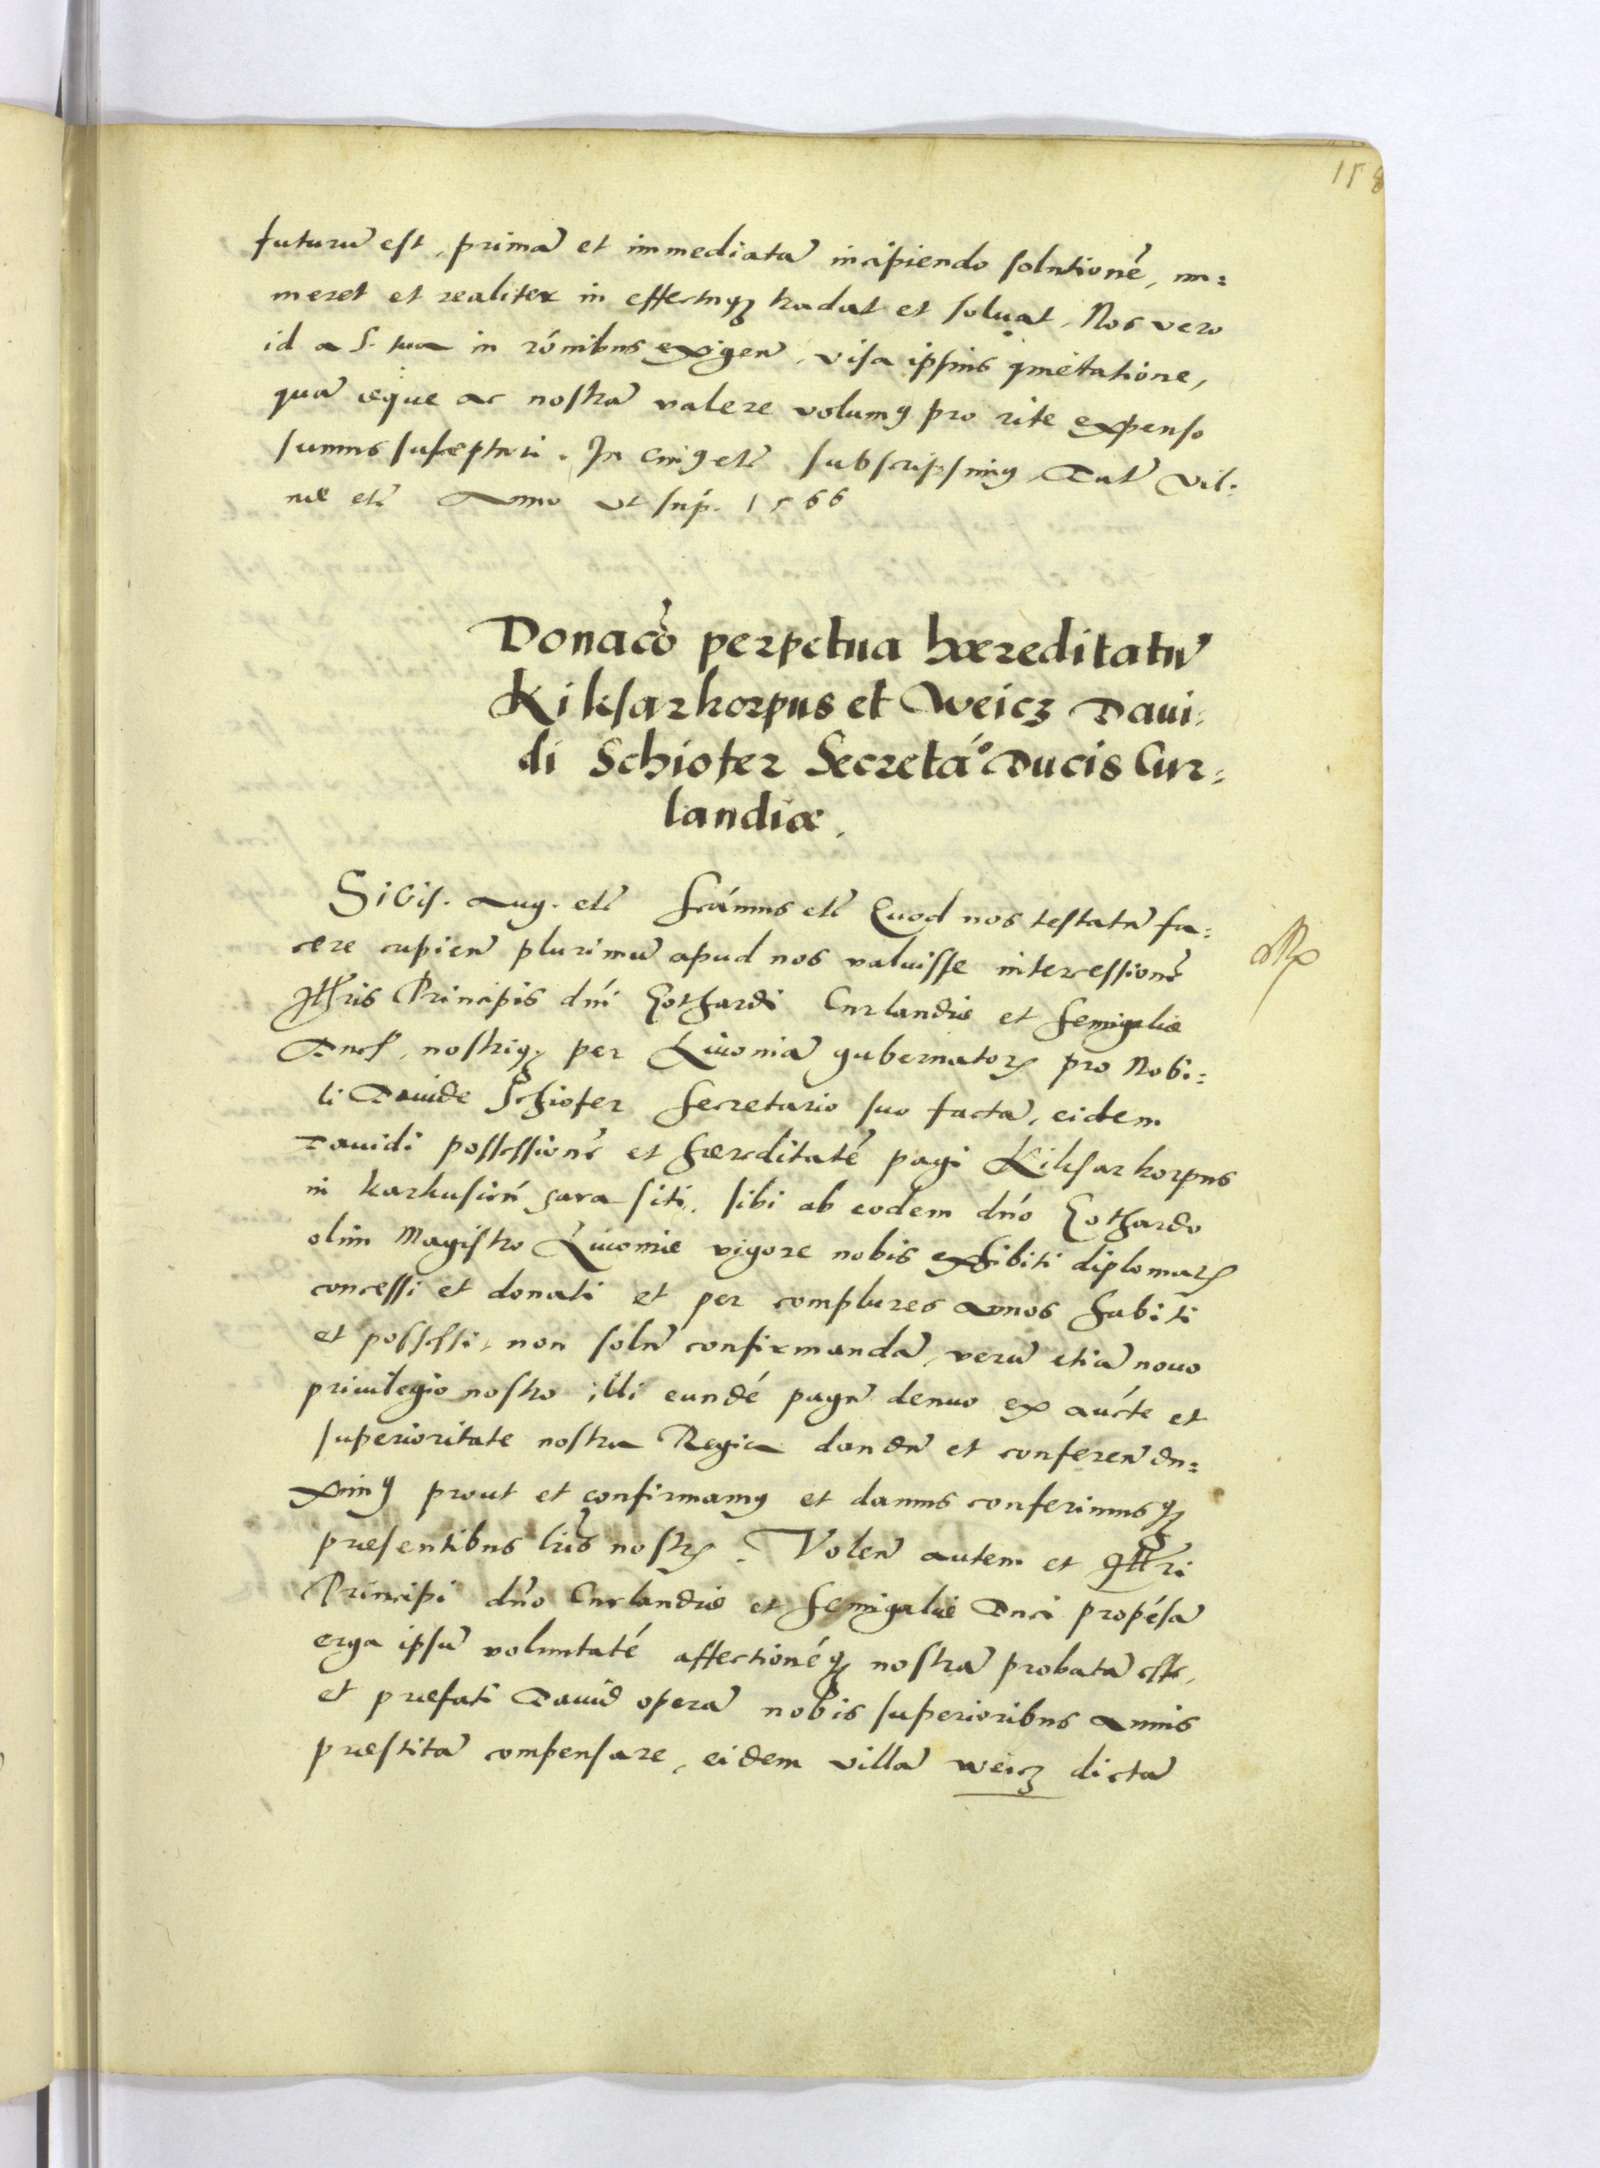 158
futurū est, primā et immediatā incipiendo solutionē, nu=
meret et realiter in effectuq3 tradat et soluat. Nos vero
id a S. tua in rōnibus exigen̄, visa ipsius quietatione,
quā æque ac nostrā valere volumꝰ pro rite expenso
sumus suscepturi. In cuiꝰ etc̄ subscripsimꝰ Dat̄ Vil:
næ etc̄ Anno vt sup. 1566
Donac̄o perpetua hæreditatū
Kiksarkorpus et Weicz Daui:
di Schiofer Secretá° Ducis Cur=
landiæ.
Sigis. Aug. etc̄ Scámus etc̄ Quod nos testatū fa=
cere cupien̄ plurimū apud nos valuisse intercessionē
Illris Principis dńi Gothardi Curlandiæ et Semigaliæ
Ducs, nostriq3 per Liuoniā gubernatorꝭ pro Nobi=
li Dauide Schiofer Secretario suo factā, eidem
Dauidi possessionē et hæreditatē pagi Kiksarkorpus
in Karkusień siti, sibi ab eodem dńo Gothardo
olim Magistro Liuoniæ vigore nobis exhibiti diplomatꝭ
concessi et donati et per complures annos habiti
et possessi, non solū confirmandā, verū etiā nouo
priuilegio nostro illi eundē pagū denuo ex aućte et
superioritate nostra Regia dandū et conferen̄ du=
ximꝰ prout et confirmamꝰ et damus conferimusq3
præsentibus lris̄ nostrꝭ. Volen̄ autem et Illri
Principi dńo Curlandiæ et Semigaliæ Duci propēsā
erga ipsū voluntatē affectionēq3 nostrā probatā esse,
et præfati Dauid operā nobis superioribus annis
præstitā compensare, eidem villā weicz dictā